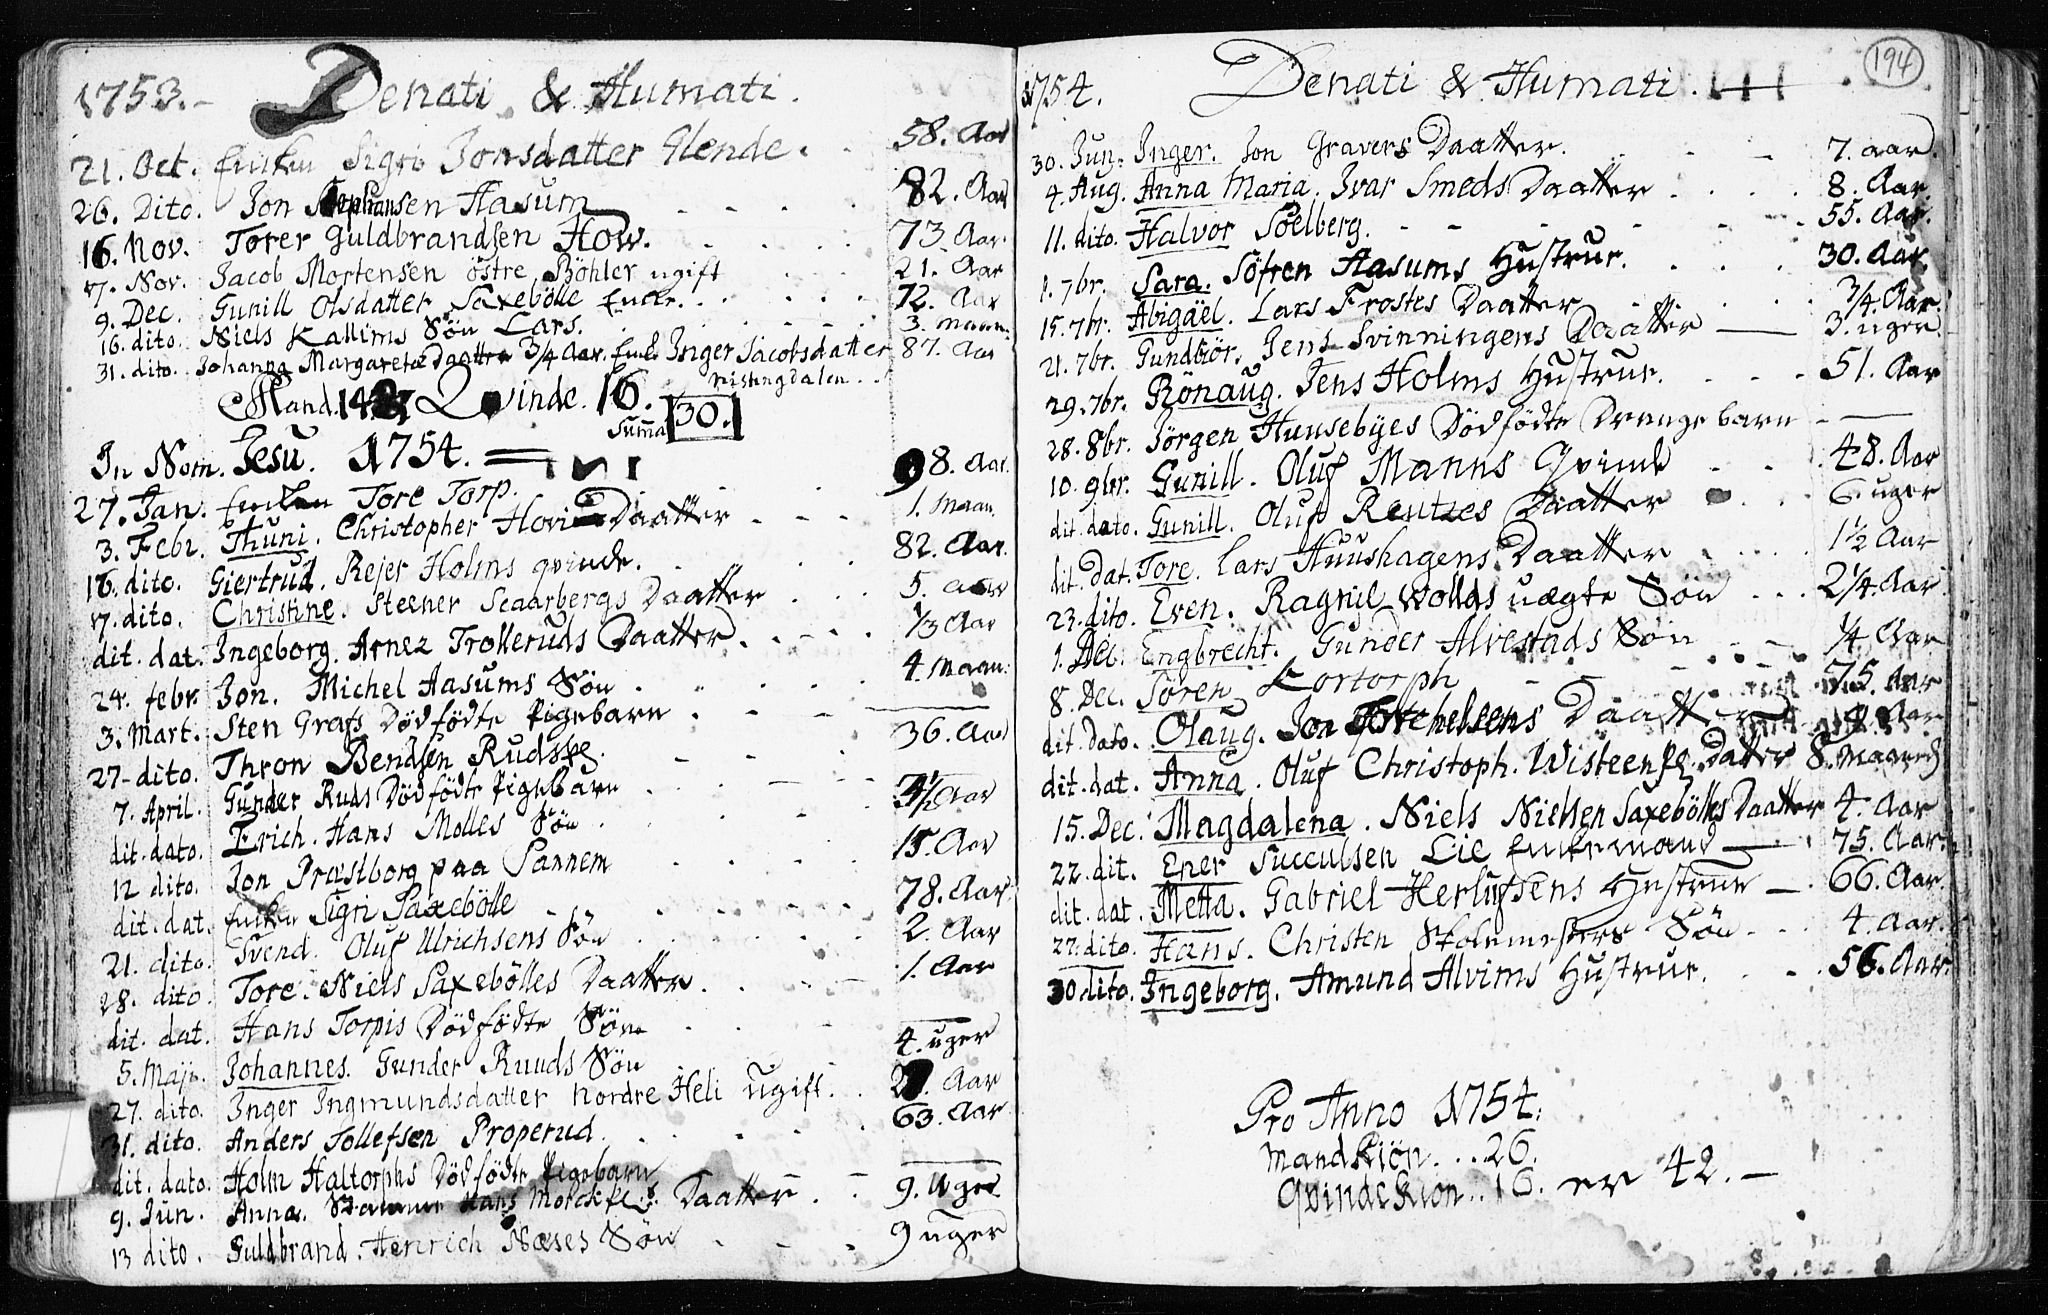 1753.- Denati & Humati.
21. Oct. Enken Sigri Jonsdatter Glende. 58. Aar
26. Dito. Jon Stephansen Aasum 82. Aar
16. Nov. Torer Guldbrandsen How. 73. Aar.
17. Nov. Jacob Mortensen östre Böhler ugift 21. Aar
9. Dec. Gunill Olsdatter Saxebölle Enke. 72. Aar
16. dito. Niels Kallims Sön Lars. 3. Maan.
31. dito. Johanna Margareta Daatter 3/4 Aar. Enke Inger Jacobsdatter 87. Aar
Mand. 14 Qvinde. 16. Suma 30.
In Nom. Jesu. 1754.
27. Jan. Enken Tore Torp. 98. Aar.
3. Febr. Thuni. Christopher Hovi Daatter 1. Maan.
16. dito. Giertrud. Rejer Holms qvinde. 82. Aar.
17. dito. Christine. Steener Scaarbergs Daatter 5. Aar
dit. dat. Ingeborg. Arnez Trolleruds Daatter. 1/3 Aar
24. febr. Jon. Michel Aasums Sön 4. Maan.
3. Mart. Sten Grafs Dödfödte Pigebarn
27- dito. Thron Bendsen Rudsæ. 36. Aar
7. April. Gunder Ruds Dödfödte Pigebarn
dit. dato. Erich. Hans Molles Sön 3 1/2 Aar
12 dito. Jon Præstborg paa Sannem 15. Aar
dit. dat. Enken Sigri Saxebölle 78. Aar
21. dito. Svend. Oluf Ulrichsens Sön 2. Aar
28. dito Tore. Niels Saxebölles Daatter. 1. Aar
dit. dat. Hans Torpis Dödfödte Sön
5. Maji. Johannes. Gunder Ruuds Sön 4. uger
27. dito. Inger Ingmundsdatter Nordre Heli ugift. Aar
31. dito. Anders Tollefsen Properud. 63. Aar
dit. dato. Holm Haltorphs Dödfödte Pigebarn
9. Jun. Anna. Hans Daatter 9. Uger
13 dito. Guldbrand. Henrich Næses Sön 9 uger
1754. Denati & Humati. 194
30. Jun. Inger. Jon Gravers Daatter. 7. aar.
4. Aug. Anna Maria. Ivar Smeds Daatter 8. Aar
11. dito. Halvor Soelberg. 55. Aar.
1. 7br. Sara. Söfren Aasums Hustrue. 30. Aar
15. 7br. Abigäel. Lars Frostes Daatter 3/4. Aar.
21. 7br. Gundbiör. Jens Svinningens Daatter 3. uger
29. 7br. Rönaug. Jens Holms Hustrue. 51. Aar
28. 8br. Jörgen Huusebyes Dödfödte Drengebarn
10. 9br. Gunill. Oluf Manns Qvinde 48. Aar
dit. dato. Gunill. Oluf Reutzes Daatter 6. uger
dit. Dat. Tore. Lars Huushagens Daatter 1 1/2 Aar
23. dito. Even. Ragnil Wollds uægte Sön 2 1/4. Aar
1. Dec. Engbrecht. Gunder Alvestads Sön 1/4 Aar
8. Dec. Sören Kortorph 75. Aar
dit. dato. Olaug. Jon Daatter Aar
dit. dat. Anna. Oluf Christoph. Datter 8. Maaned
15. Dec. Magdalena. Niels Nielsen Saxebölles Daatter 4. Aar
22. dit. Ener Succulsen Lie Enkemand 75. Aar.
dit. dat. Metta. Gabriel Herlufsens Hustrue 66. Aar.
27. dito. Hans. Christen Skolemesters Sön 4. Aar.
30 dito. Ingeborg. Amund Alvims Hustrue. 56. Aar.
Pro Anno 1754.
Mandkiön. .. 26.
Qvindekiön.. 16. er 42.